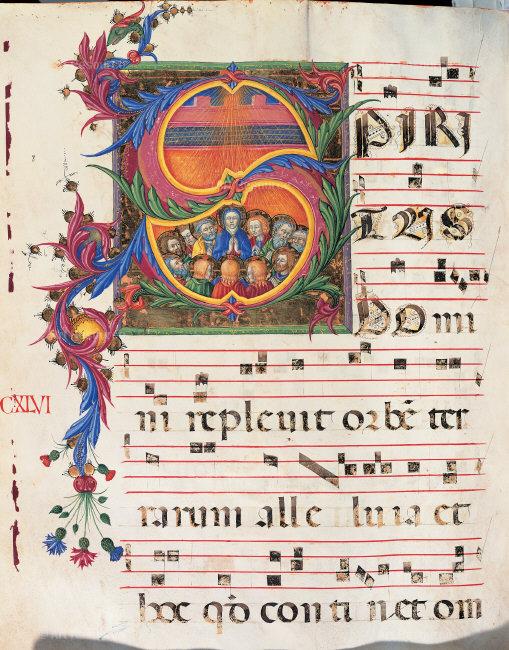 SPIRI
TUS
DOmi
CXLVI
ni repleuit orbē ter
rarum alle luia et
hoc qđ con ti net om